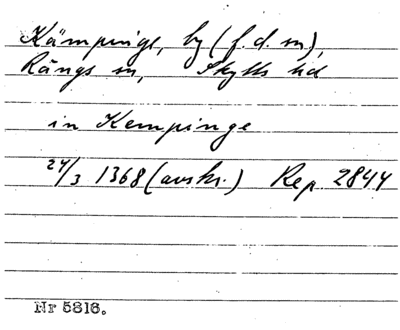 Kämpinge, by (f. d. sn),
Rängs sn, Skytts hd
in Kempinge
24/3 1368 (avskr.) Rep 2844
Nr 5816.